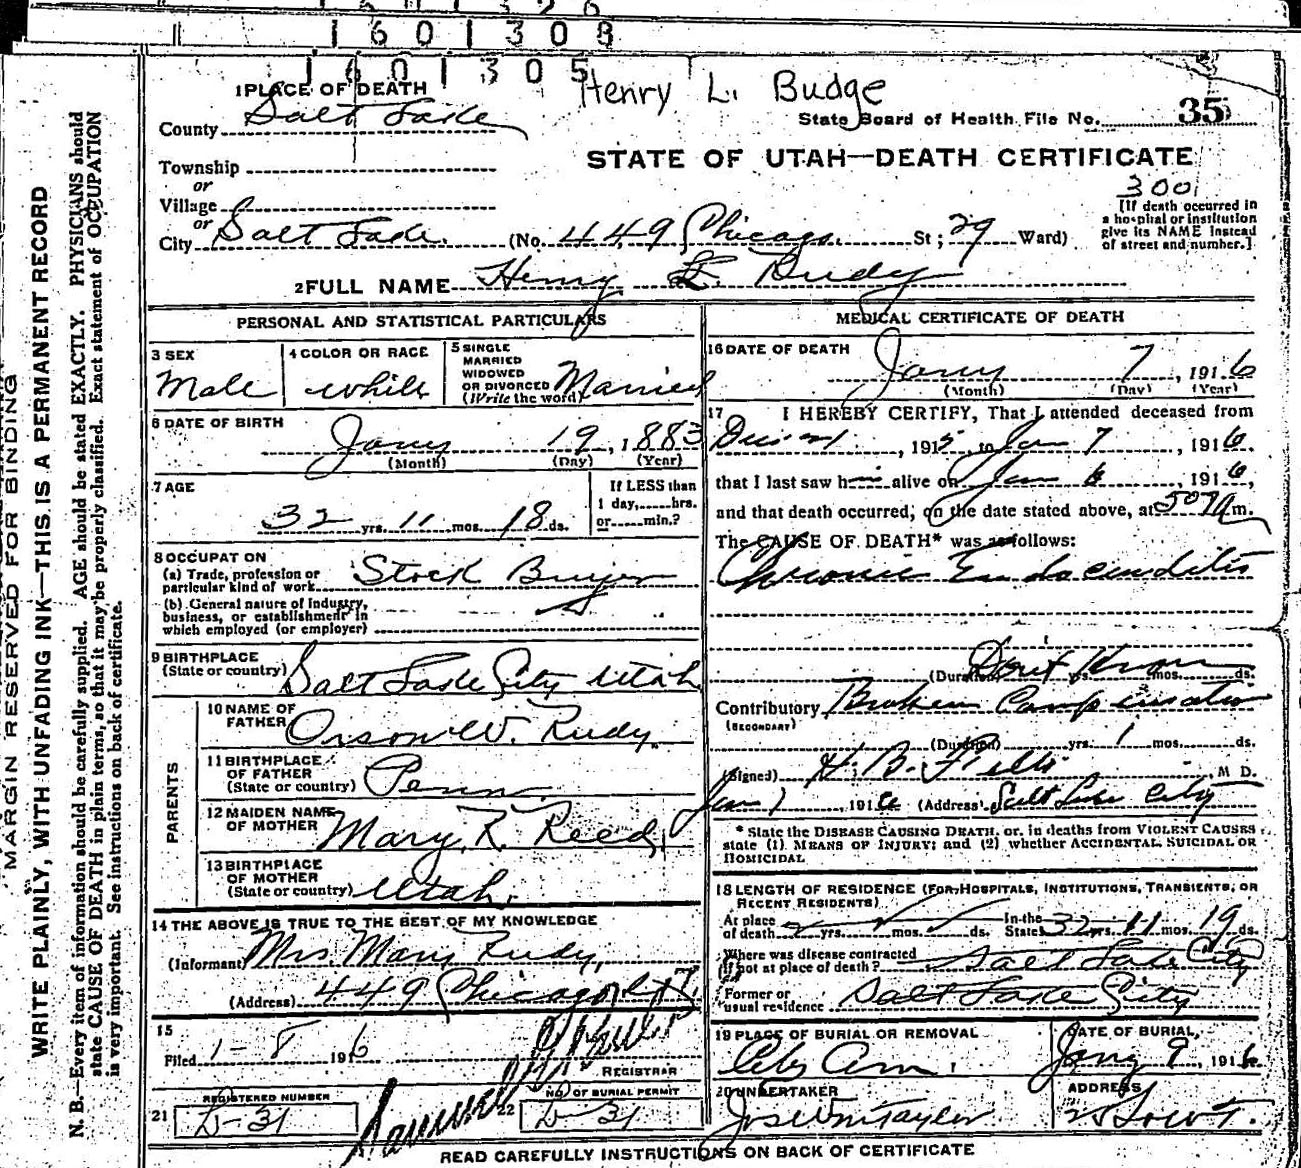 1601308
1601305
Henry L. Budge
1 PLACE OF DEATH
County Salt Lake
State Board of Health File No. 35
Township
or
Village
or
City Salt Lake. (No. 449 Chicago. St; 29 Ward)
STATE OF UTAH—DEATH CERTIFICATE
3001
[If death occurred in
a hospital or institution
give its NAME instead
of street and number.]
2 FULL NAME Henry L. Rudy
PERSONAL AND STATISTICAL PARTICULARS
3 SEX Male
4 COLOR OR RACE White
5 SINGLE
MARRIED
WIDOWED
OR DIVORCED
(Write the word) Married
6 DATE OF BIRTH
Jany 19, 1883
(Month) (Day) (Year)
7 AGE
32 yrs. 11 mos. 18 ds.
If LESS than
1 day, hrs.
or min.?
8 OCCUPAT ON
(a) Trade, profession or
particular kind of work Stock Buyer
(b) General nature of Industry,
business, or establishment in
which employed (or employer)
9 BIRTHPLACE
(State or country) Salt Lake City Utah
PARENTS
10 NAME OF
FATHER Orson W. Rudy.
11 BIRTHPLACE
OF FATHER
(State or country) Penn.
12 MAIDEN NAME
OF MOTHER Mary R. Reed
13 BIRTHPLACE
OF MOTHER
(State or country) Utah.
14 THE ABOVE IS TRUE TO THE BEST OF MY KNOWLEDGE
(Informant) Mrs. Mary Rudy,
(Address) 449 Chicago St.
15
Filed 1-8 1916
REGISTRAR
REGISTERED NUMBER
21 D-31
NO. OF BURIAL PERMIT
22 D-31
MEDICAL CERTIFICATE OF DEATH
16 DATE OF DEATH
Jany 7, 1916
(Month) (Day) (Year)
17 I HEREBY CERTIFY, That I attended deceased from
1915, to Jan 7, 1916,
that I last saw h alive on Jan 6, 1916,
and that death occurred, on the date stated above, at m.
The CAUSE OF DEATH* was as follows:
Chronic Endocarditis
(Duration) Don't Know yrs. mos. ds.
Contributory Broken Compensation
(SECONDARY)
(Duration) yrs. 1 mos. ds.
(Signed) H. B. M D.
Jan 7, 1916 (Address) Salt Lake City
* State the DISEASE CAUSING DEATH, or, in deaths from VIOLENT CAUSES
state (1) MEANS OF INJURY; and (2) whether ACCIDENTAL, SUICIDAL OR
HOMICIDAL
18 LENGTH OF RESIDENCE (FOR HOSPITALS, INSTITUTIONS, TRANSIENTS, OR
RECENT RESIDENTS)
At place
of death yrs. mos. ds.
In the
State 32 yrs. 11 mos. 19 ds.
Where was disease contracted
if not at place of death? Salt Lake City
Former or
usual residence Salt Lake City
19 PLACE OF BURIAL OR REMOVAL
City Cem.
DATE OF BURIAL,
Jany 9, 1916
20 UNDERTAKER
Jos Wm Taylor
ADDRESS
READ CAREFULLY INSTRUCTIONS ON BACK OF CERTIFICATE
MARGIN RESERVED FOR BINDING
WRITE PLAINLY, WITH UNFADING INK—THIS IS A PERMANENT RECORD
N. B.—Every item of information should be carefully supplied. AGE should be stated EXACTLY. PHYSICIANS should
state CAUSE OF DEATH in plain terms, so that it may be properly classified. Exact statement of OCCUPATION
is very important. See instructions on back of certificate.